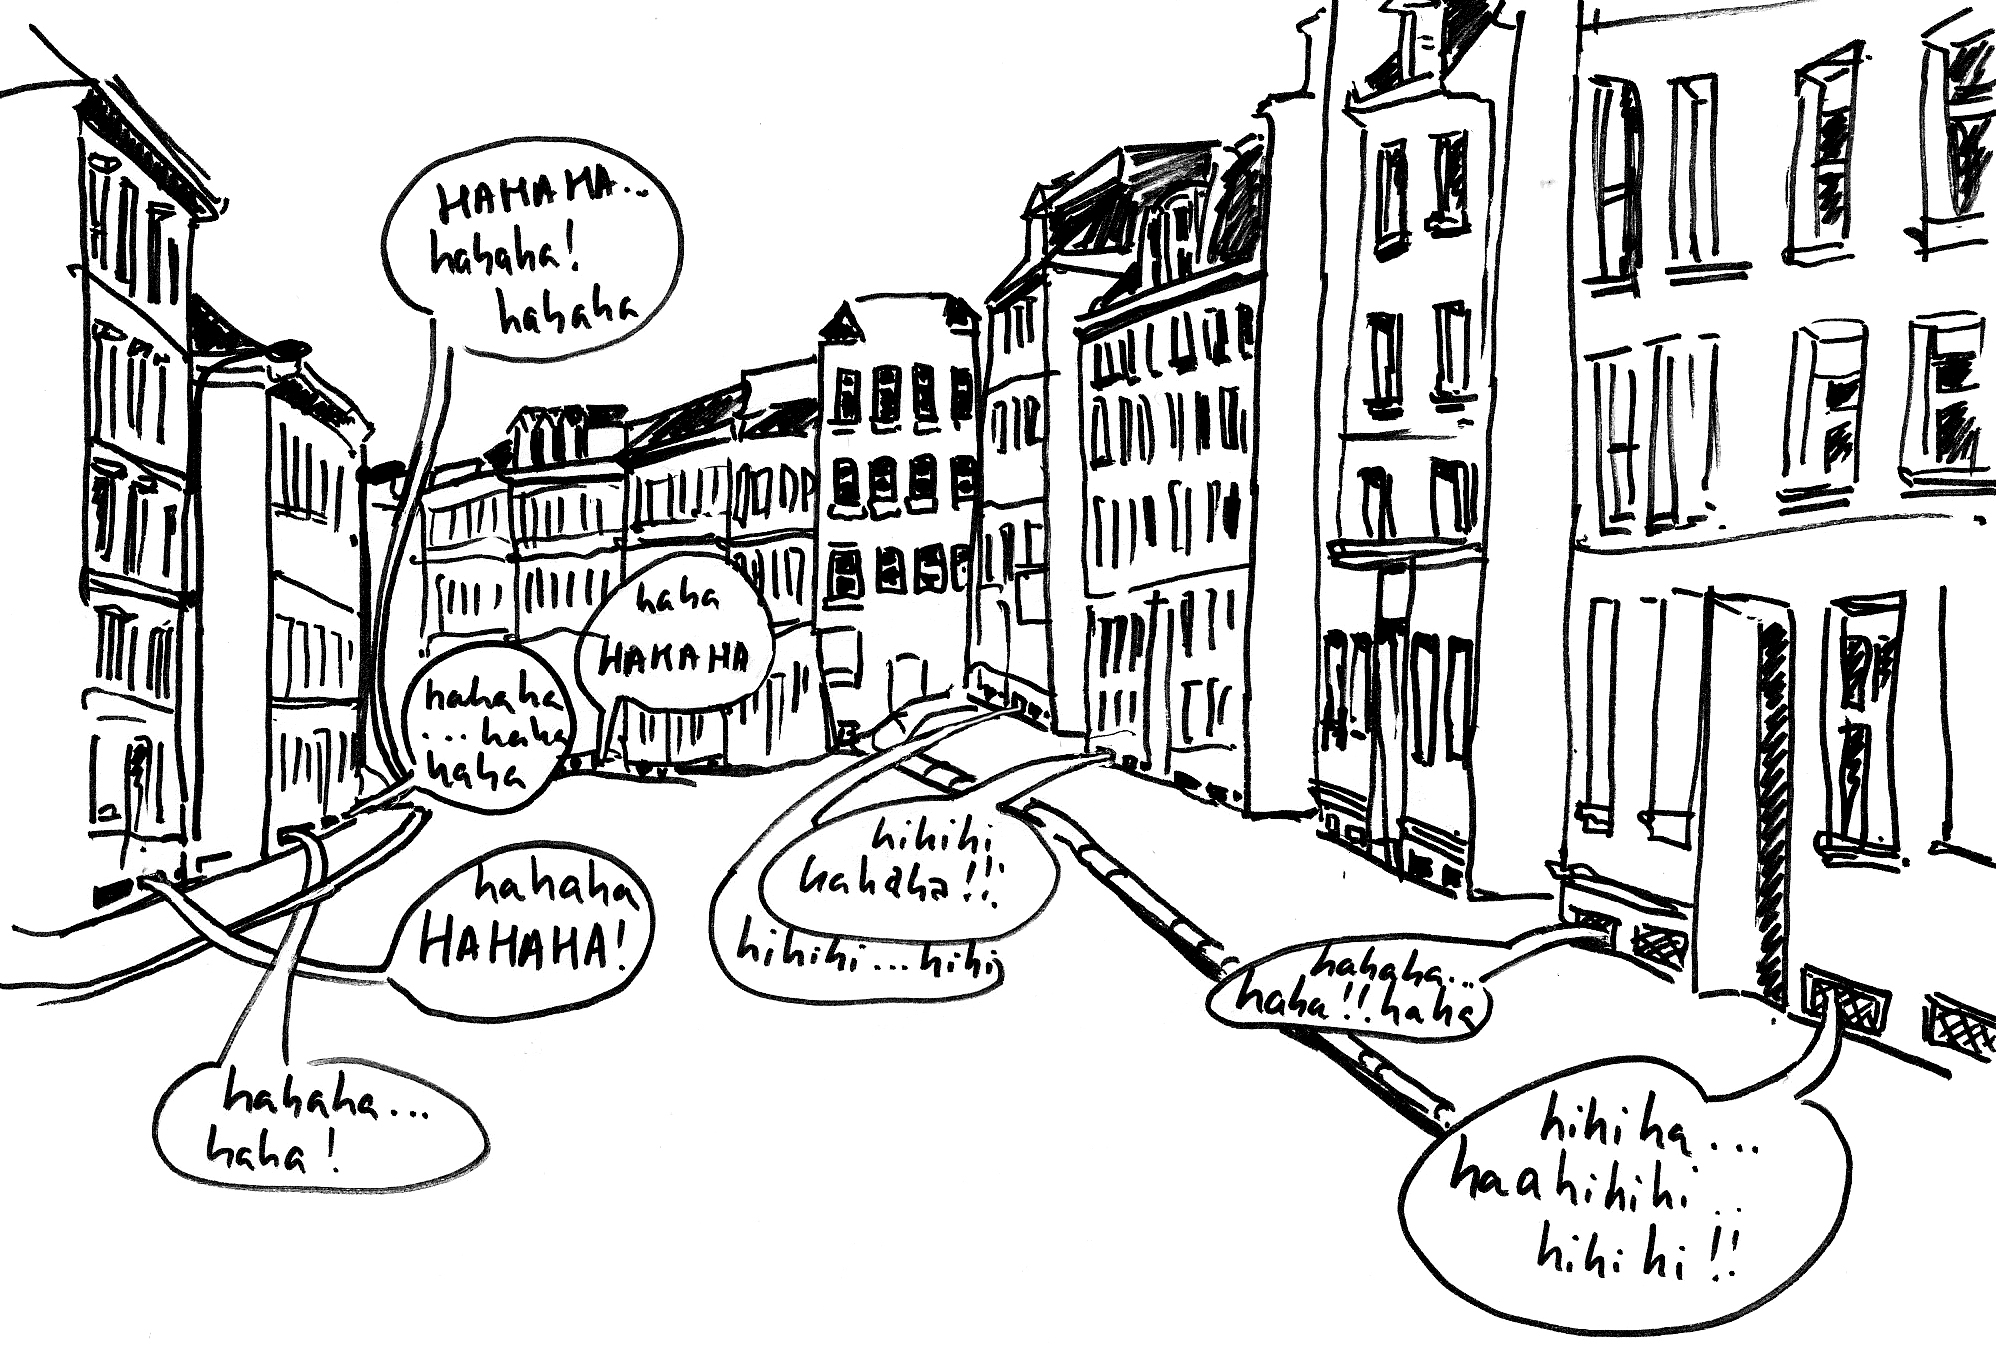 HAHAHA..
hahaha!
hahaha
haha
HAHAHA
hahaha
...haha
haha
hahaha
HAHAHA!
hihihi
hahaha!!!
hihihi...hihi
hahaha...
haha!!haha
hahaha...
haha!
hihiha...
haahihihi..
hihihi!!